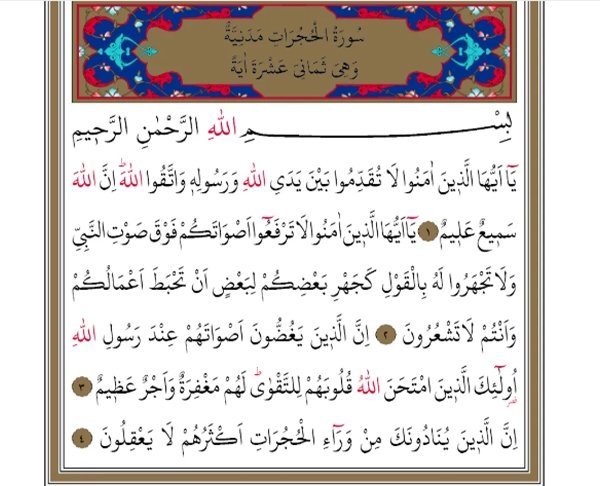 سُورَةُ الْحُجُرَاتِ مَدَنِيَّةٌ
وَهِيَ ثَمَانِيَ عَشْرَةَ اٰيَةً
بِسْــــــــمِ اللهِ الرَّحْمٰنِ الرَّحٖيمِ
يَٓا اَيُّهَا الَّذٖينَ اٰمَنُوا لَا تُقَدِّمُوا بَيْنَ يَدَيِ اللهِ وَرَسُولِهٖ وَاتَّقُوا اللهَؕ اِنَّ اللهَ
سَمٖيعٌ عَلٖيمٌ ﴿١﴾ يَٓا اَيُّهَا الَّذٖينَ اٰمَنُوا لَا تَرْفَعُٓوا اَصْوَاتَكُمْ فَوْقَ صَوْتِ النَّبِيِّ
وَلَا تَجْهَرُوا لَهُ بِالْقَوْلِ كَجَهْرِ بَعْضِكُمْ لِبَعْضٍ اَنْ تَحْبَطَ اَعْمَالُكُمْ
وَاَنْتُمْ لَا تَشْعُرُونَ ﴿٢﴾ اِنَّ الَّذٖينَ يَغُضُّونَ اَصْوَاتَهُمْ عِنْدَ رَسُولِ اللهِ
اُو۬لٰٓئِكَ الَّذٖينَ امْتَحَنَ اللهُ قُلُوبَهُمْ لِلتَّقْوٰىؕ لَهُمْ مَغْفِرَةٌ وَاَجْرٌ عَظٖيمٌ ﴿٣﴾
اِنَّ الَّذٖينَ يُنَادُونَكَ مِنْ وَرَٓاءِ الْحُجُرَاتِ اَكْثَرُهُمْ لَا يَعْقِلُونَ ﴿٤﴾